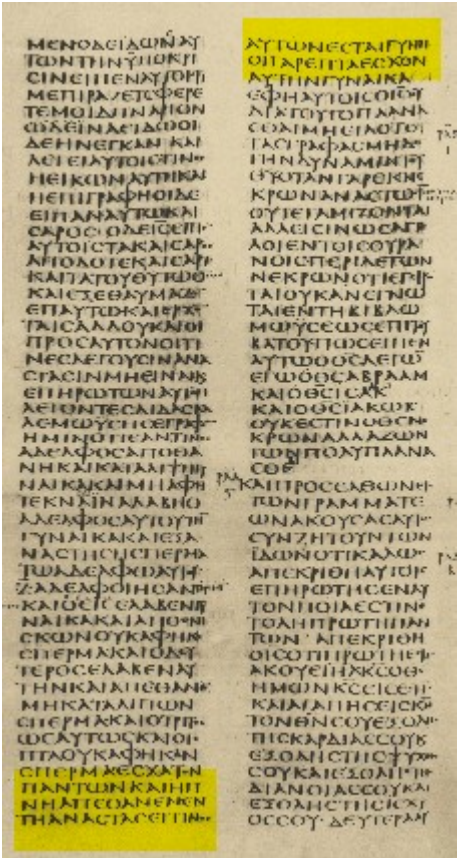 ΜΕΝΟΔΕΙΔΩΝΑΥ
ΤΩΝΤΗΝΥΠΟΚΡΙ
ϹΙΝΕΙΠΕΝΑΥΤΟΙϹ
ΜΕΠΙΡΑΖΕΤΕΦΕΡΕ
ΤΕΜΟΙΔΗΝΑΡΙΟΝ
ΩΔΕΙΝΑΕΙΔΩΟΙ
ΔΕΗΝΕΓΚΑΝΚΑΙ
ΛΕΓΕΙΑΥΤΟΙϹΤΙΝΟϹ
ΗΕΙΚΩΝΑΥΤΗΚΑΙ
ΗΕΠΙΓΡΑΦΗΟΙΔΕ
ΕΙΠΑΝΑΥΤΩΚΑΙ
ϹΑΡΟϹΟΔΕΙϹΕΙΠΕ
ΑΥΤΟΙϹΤΑΚΑΙϹΑΡΟϹ
ΑΠΟΔΟΤΕΚΑΙϹΑΡΙ
ΚΑΙΤΑΤΟΥΘΥΤΩΘΩ
ΚΑΙΕΞΕΘΑΥΜΑΖΟΝ
ΕΠΑΥΤΩΚΑΙΕΡΧΟΝ
ΤΑΙϹΑΔΔΟΥΚΑΙΟΙ
ΠΡΟϹΑΥΤΟΝΟΙΤΙ
ΝΕϹΛΕΓΟΥϹΙΝΑΝΑ
ϹΤΑϹΙΝΜΗΕΙΝΑΙΚΑΙ
ΕΠΗΡΩΤΩΝΑΥΤΟΝ
ΛΕΓΟΝΤΕϹΔΙΔΑϹΚΑ
ΛΕΜΩΥϹΗϹΕΓΡΑΨΕ
ΗΜΙΝΟΤΙΕΑΝΤΙΝΟϹ
ΑΔΕΛΦΟϹΑΠΟΘΑ
ΝΗΚΑΙΚΑΤΑΛΙΠΗ
ΝΑΙΚΑΚΑΙΜΗΑΦΗ
ΤΕΚΝΑΙΝΑΛΑΒΗΟ
ΑΔΕΛΦΟϹΑΥΤΟΥΤΗ
ΓΥΝΑΙΚΑΚΑΙΕΞΑ
ΝΑϹΤΗϹΗϹΠΕΡΜΑ
ΤΩΑΔΕΛΦΩΑΥΤΟΥ
ΖΑΔΕΛΦΟΙΗϹΑΝ
ΚΑΙΟΕΙϹΕΛΑΒΕΝΓΥ
ΝΑΙΚΑΚΑΙΑΠΟΘΝΗ
ϹΚΩΝΟΥΚΑΦΗΚΕ
ϹΠΕΡΜΑΚΑΙΟΔΕΥ
ΤΕΡΟϹΕΛΑΒΕΝΑΥ
ΤΗΝΚΑΙΑΠΕΘΑΝΕ
ΜΗΚΑΤΑΛΙΠΩΝ
ϹΠΕΡΜΑΚΑΙΟΤΡΙΤΟϹ
ΩϹΑΥΤΩϹΚΑΙΟΙ
ΕΠΤΑΟΥΚΑΦΗΚΑΝ
ϹΠΕΡΜΑΕϹΧΑΤΟΝ
ΠΑΝΤΩΝΚΑΙΗΓΥ
ΝΗΑΠΕΘΑΝΕΝΕΝ
ΤΗΑΝΑϹΤΑϹΕΙΤΙΝΟϹ
ΑΥΤΩΝΕϹΤΑΙΓΥΝΗ
ΟΙΓΑΡΕΠΤΑΕϹΧΟΝ
ΑΥΤΗΝΓΥΝΑΙΚΑ
ΕΦΗΑΥΤΟΙϹΟΙϹΟΥ
ΔΙΑΤΟΥΤΟΠΛΑΝΑ
ϹΘΑΙΜΗΕΙΔΟΤΕϹ
ΤΑϹΓΡΑΦΑϹΜΗΔΕ
ΤΗΝΔΥΝΑΜΙΝΤΟΥ
ΘΥΟΤΑΝΓΑΡΕΚΝΕ
ΚΡΩΝΑΝΑϹΤΩϹΙΝ
ΟΥΤΕΓΑΜΙΖΟΝΤΑΙ
ΑΛΛΕΙϹΙΝΩϹΑΓΓΕ
ΛΟΙΕΝΤΟΙϹΟΥΡΑ
ΝΟΙϹΠΕΡΙΔΕΤΩΝ
ΝΕΚΡΩΝΟΤΙΕΓΕΙΡΟ
ΤΑΙΟΥΚΑΝΕΓΝΩ
ΤΑΙΕΝΤΗΒΙΒΛΩ
ΜΩΥϹΕΩϹΕΠΙΤΟΥ
ΒΑΤΟΥΠΩϹΕΙΠΕΝ
ΑΥΤΩΟΘϹΛΕΓΩ
ΕΓΩΟΘϹΑΒΡΑΑΜ
ΚΑΙΟΘϹΙϹΑΚ
ΚΑΙΟΘϹΙΑΚΩΒ
ΟΥΚΕϹΤΙΝΟΘϹΝΕ
ΚΡΩΝΑΛΛΑΖΩΝ
ΤΩΝΠΟΛΥΠΛΑΝΑ
ϹΘΕ
ΚΑΙΠΡΟϹΕΛΘΩΝΕΙϹ
ΤΩΝΓΡΑΜΜΑΤΕ
ΩΝΑΚΟΥϹΑϹΑΥΤΩ
ϹΥΝΖΗΤΟΥΝΤΩΝ
ΙΔΩΝΟΤΙΚΑΛΩϹ
ΑΠΕΚΡΙΘΗΑΥΤΟΙϹ
ΕΠΗΡΩΤΗϹΕΝΑΥ
ΤΟΝΠΟΙΑΕϹΤΙΝ
ΤΟΛΗΠΡΩΤΗΠΑΝ
ΤΩΝ·ΑΠΕΚΡΙΘΗ
ΟΙϹΟΤΙΠΡΩΤΗΕϹΤΙ
ΑΚΟΥΕΙΗΛΚϹΟΘϹ
ΗΜΩΝΚϹΕΙϹΕϹΤΙ
ΚΑΙΑΓΑΠΗϹΕΙϹΚΝ
ΤΟΝΘΝϹΟΥΕΞΟΛΗϹ
ΤΗϹΚΑΡΔΙΑϹϹΟΥΚ
ΕΞΟΛΗϹΤΗϹΨΥΧΗϹ
ϹΟΥΚΑΙΕΞΟΛΗϹΤΗϹ
ΔΙΑΝΟΙΑϹϹΟΥΚΑΙ
ΕΞΟΛΗϹΤΗϹΙϹΧΥ
ΟϹϹΟΥ·ΔΕΥΤΕΡΑΑΥ